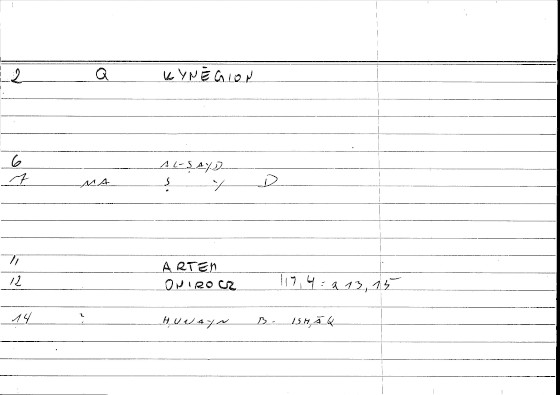 2 Q KYNĒGION
6 AL-ṢAYD
7 MA Ṣ Y D
11 ARTEM
12 ONIROCR 117,4 = 213,15
14 : ḤUNAYN B. ISḤĀQ